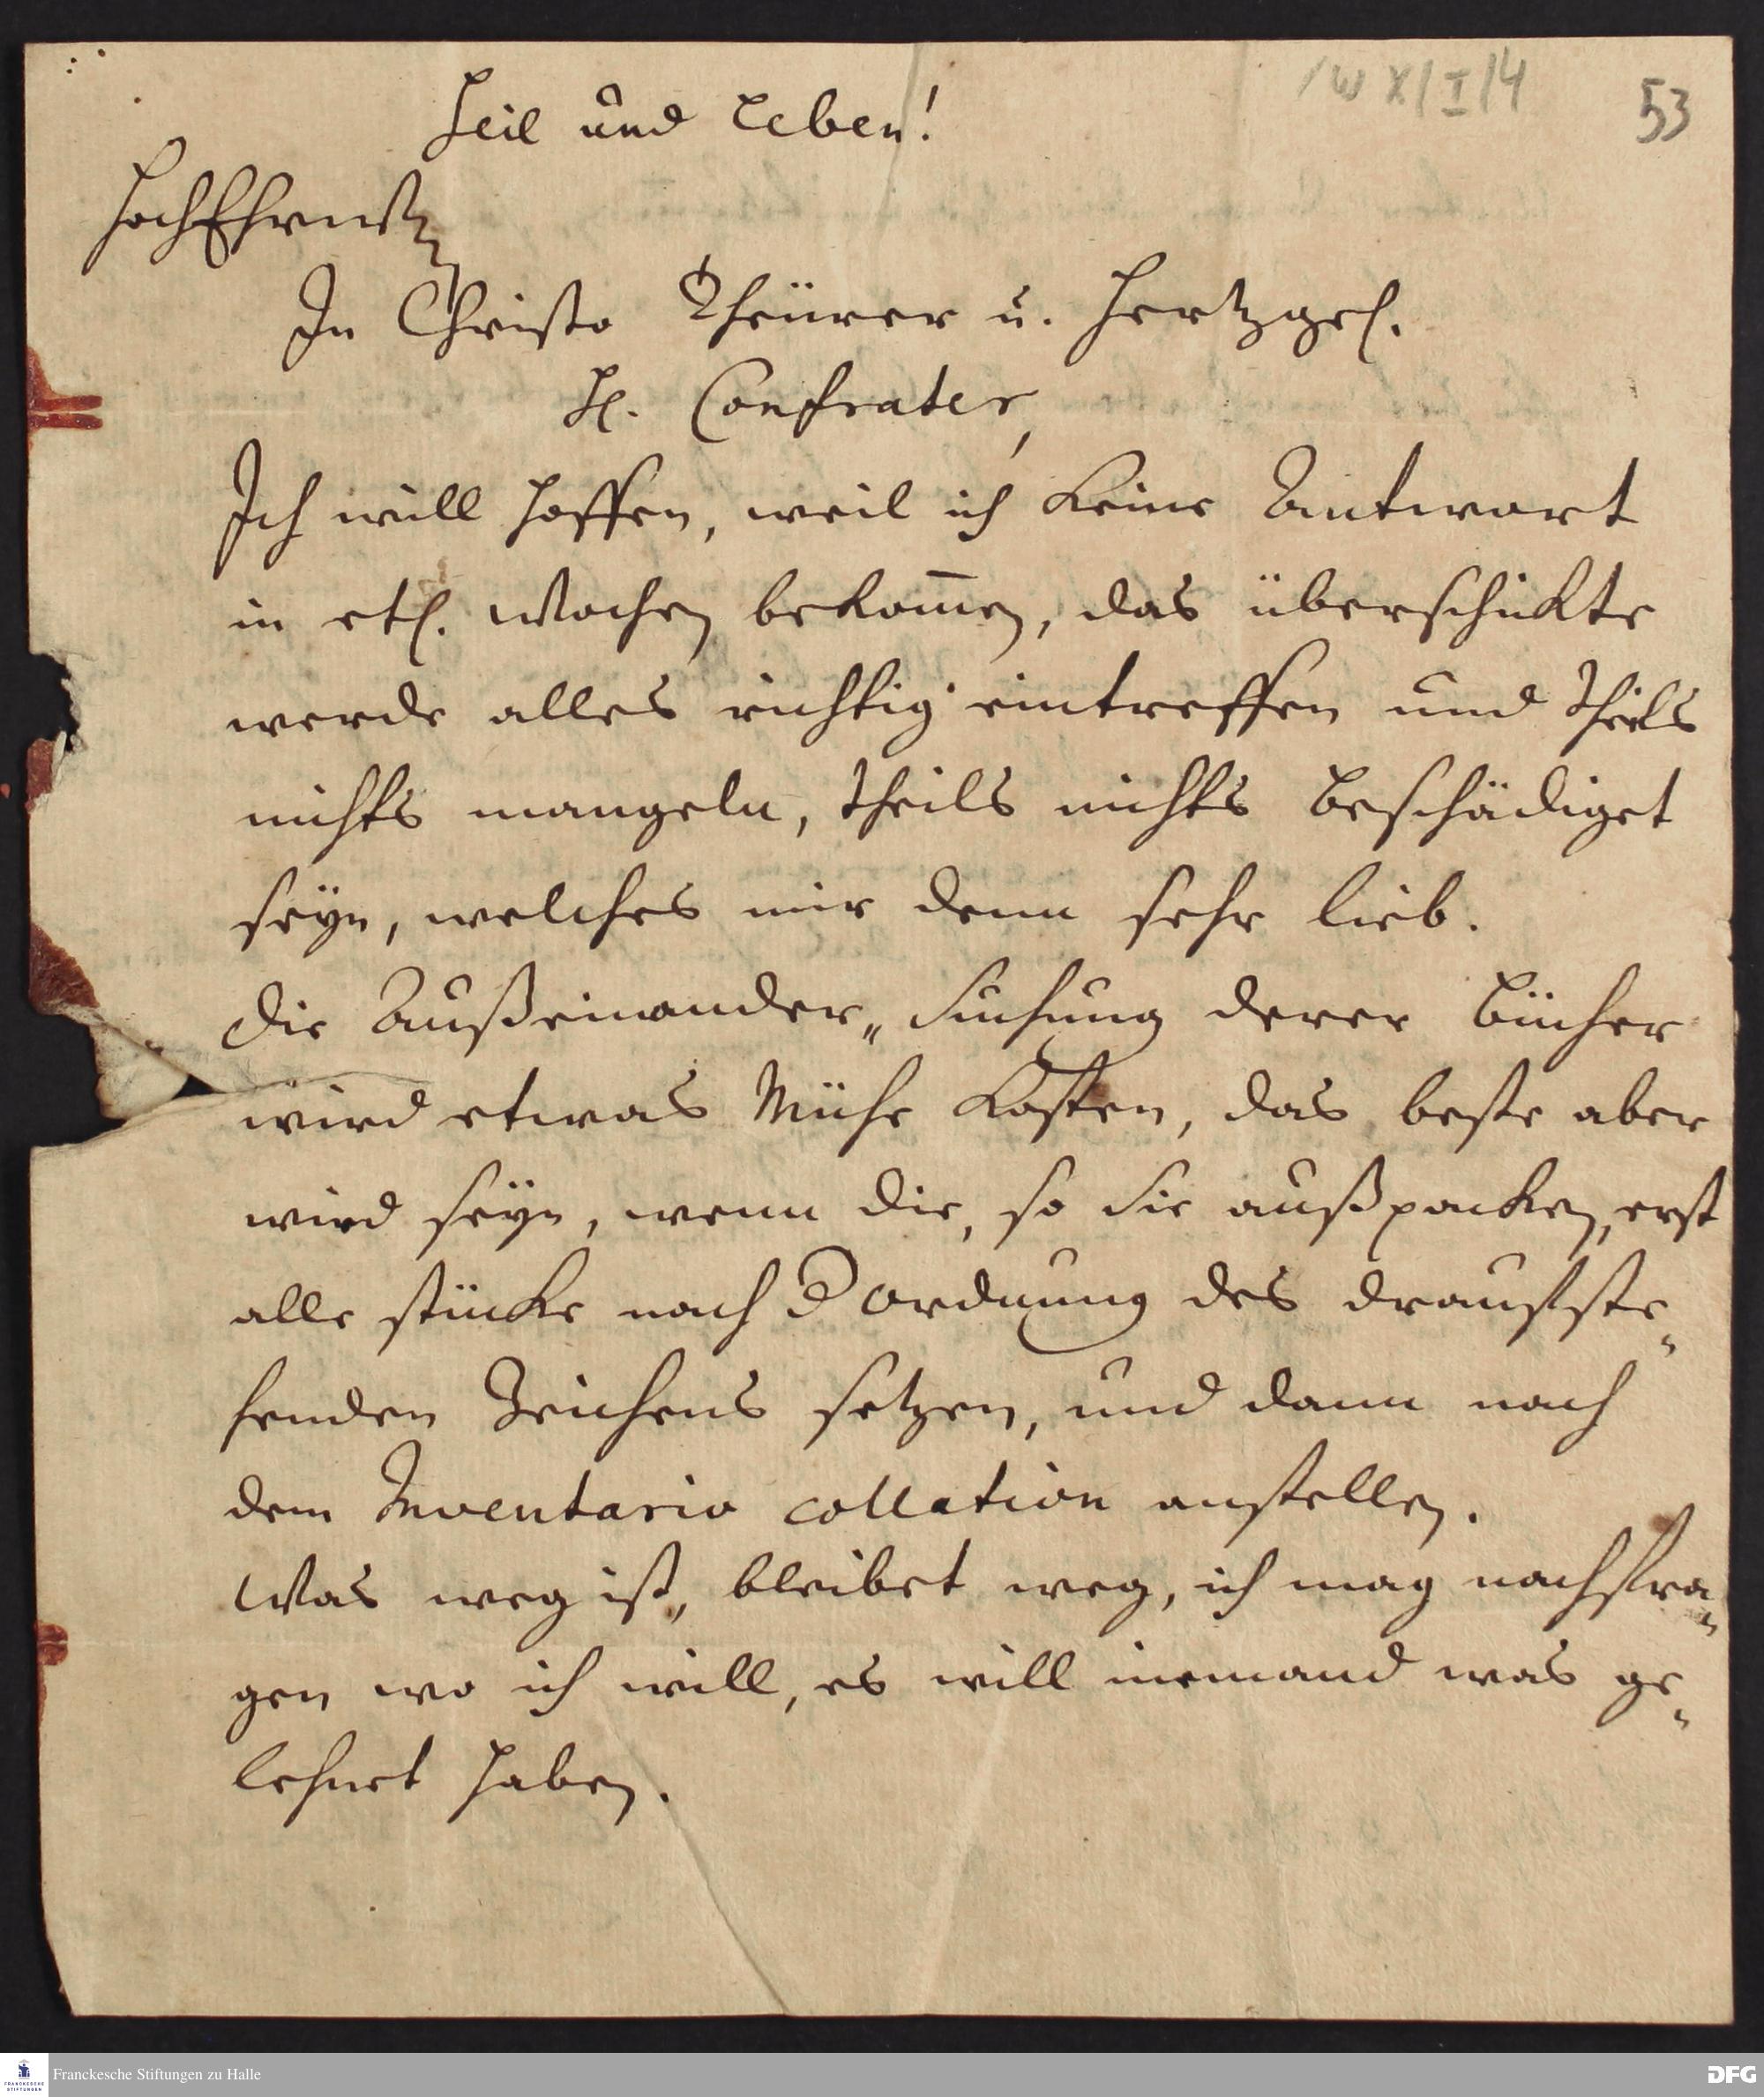 /W XI/I/4
53
Heil und Leben!
HochEhrnst
In Christo Theürer u. Hertzgel.
H. Confrater,
Ich will hoffen, weil ich keine Antwort
in etl. Wochen bekom̅en, das überschickte
werde alles richtig eintreffen und theils
nichts mangeln, theils nichts beschädiget
seÿn, welches mir denn sehr lieb.
Die Außeinander„ Suchung derer Bücher
wird etwas Mühe kosten, das beste aber
wird seÿn, wenn die, so Sie außpacken, erst
alle stücke nach d ordnung des draufste„
henden Zeichens setzen, und dann nach
dem Inventario collation anstellen.
Was weg ist, bleibet weg, ich mag nachfra„
gen wo ich will, es will niemand was ge„
lehnet haben.
FRANCKESCHE STIFTUNGEN
Franckesche Stiftungen zu Halle
DFG